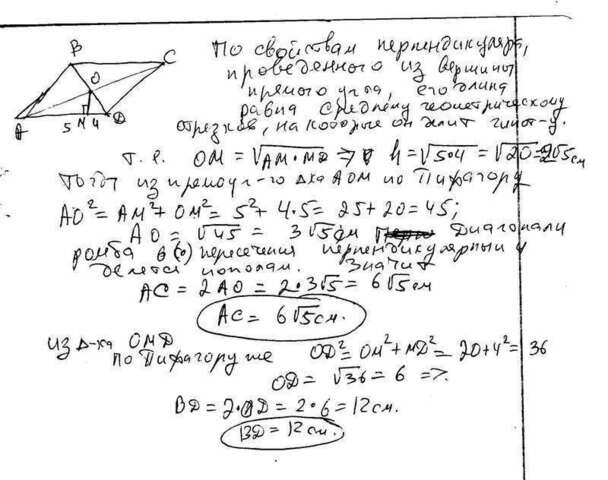 B C
O
A 5 M 4 D
По свойствам перпендикуляра,
проведенного из вершины
прямого угла, его длина
равна среднему геометрическому
отрезков, на которые он делит гипот-у.
т.е. OM = √AM·MD => h = √5·4 = √20 = 2√5 см
Тогда из прямоуг-го Δ-ка AOM по Пифагору
AO² = AM² + OM² = 5² + 4·5 = 25 + 20 = 45;
AO = √45 = 3√5 см Диагонали
ромба в (·) пересечения перпендикулярны и
делятся пополам. Значит
AC = 2AO = 2·3√5 = 6√5 см
AC = 6√5 см.
Из Δ-ка OMD
по Пифагору же OD² = OM² + MD² = 20 + 4² = 36
OD = √36 = 6 =>.
BD = 2·OD = 2·6 = 12 см.
BD = 12 см.